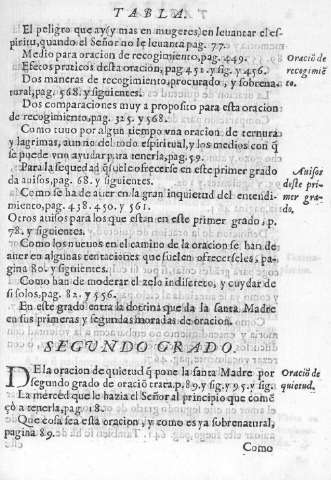 TABLA.
El peligro que ay (y mas en mugeres) en leuantar el es-
piritu, quando el Señor no le leuanta pag. 77.
Medio para oracion de recogimiẽto, pag. 449.
Efetos praticos desta oracion, pag 452. y sig. y 456.
Oració de
recogimiẽ
to.
Dos maneras de recogimiento, procurado, y sobrena-
tural, pag. 568. y siguientes.
Dos comparaciones muy a proposito para esta oracion
de recogimiento, pag. 325. y 568.
Como tuuo por algun tiempo vna oracion de ternura
y lagrimas, aun no del todo espiritual, y los medios con q̃
se puede vn ayudar para tenerla, pag. 59.
Para la sequedad q̃ suele ofrecerse en este primer grado
da auisos, pag. 68. y siguientes.
Auisos
deste pri-
mer gra-
do.
Como se ha de auer en la gran inquietud del entendi-
miento, pag. 438. 450. y 561.
Otros auisos para los que estan en este primer grado, p.
78. y siguientes.
Como los nueuos en el camino de la oracion se han de
auer en algunas tentaciones que suelen ofrecerseles, pa-
gina 80. y siguientes.
Como han de moderar el zelo indiscreto, y cuydar de
si solos, pag. 82. y 556.
En este grado entra la doctrina que da la santa Madre
en sus primeras y segundas moradas de oracion.
SEGUNDO GRADO.
DE la oracion de quietud q̃ pone la santa Madre por
segundo grado de oració trata. p. 89. y sig. y 95. y sig.
Oració de
quietud.
La merced que le hazia el Señor al principio que comẽ
çò a tenerla, pag. 18.
Que cosa sea esta oracion, y como es ya sobrenatural,
pagina 89.
Como